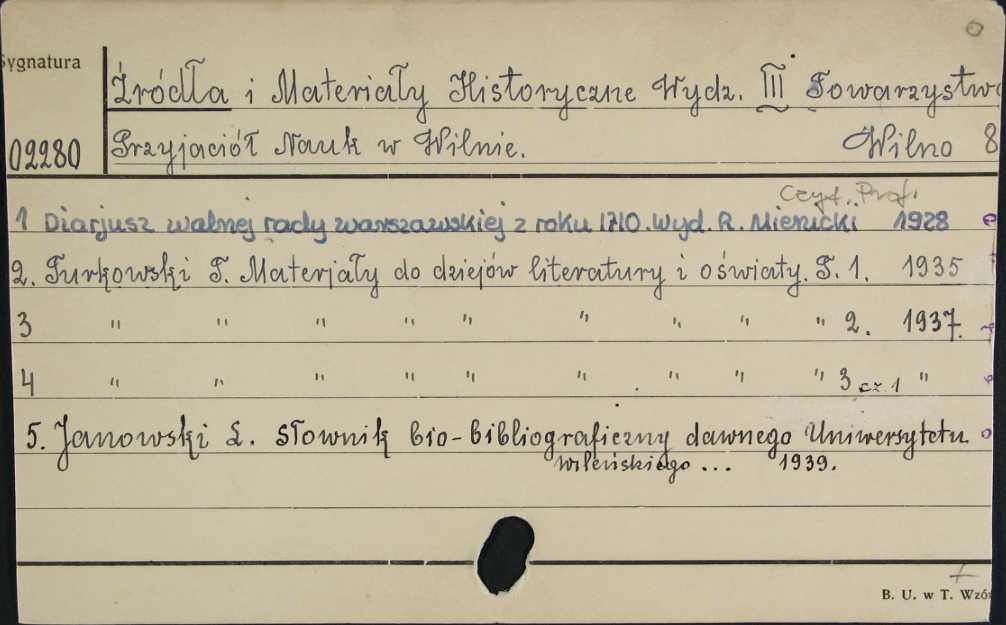 Sygnatura
Źródła i Materiały Historyczne Wydz. III Towarzystwa
02280 Przyjaciół Nauk w Wilnie. Wilno 8
Czyt. Prof.
1 Diarjusz walnej rady warszawskiej z roku 1710. Wyd. R. Mienicki 1928
2. Turkowski T. Materjały do dziejów literatury i oświaty. T. 1. 1935
3 " " " " " " " " " 2. 1937.
4 " " " " " " " " " 3 cz. 1 "
5. Janowski L. Słownik bio-bibliograficzny dawnego Uniwersytetu
Wileńskiego ... 1939.
B. U. w T. Wzór